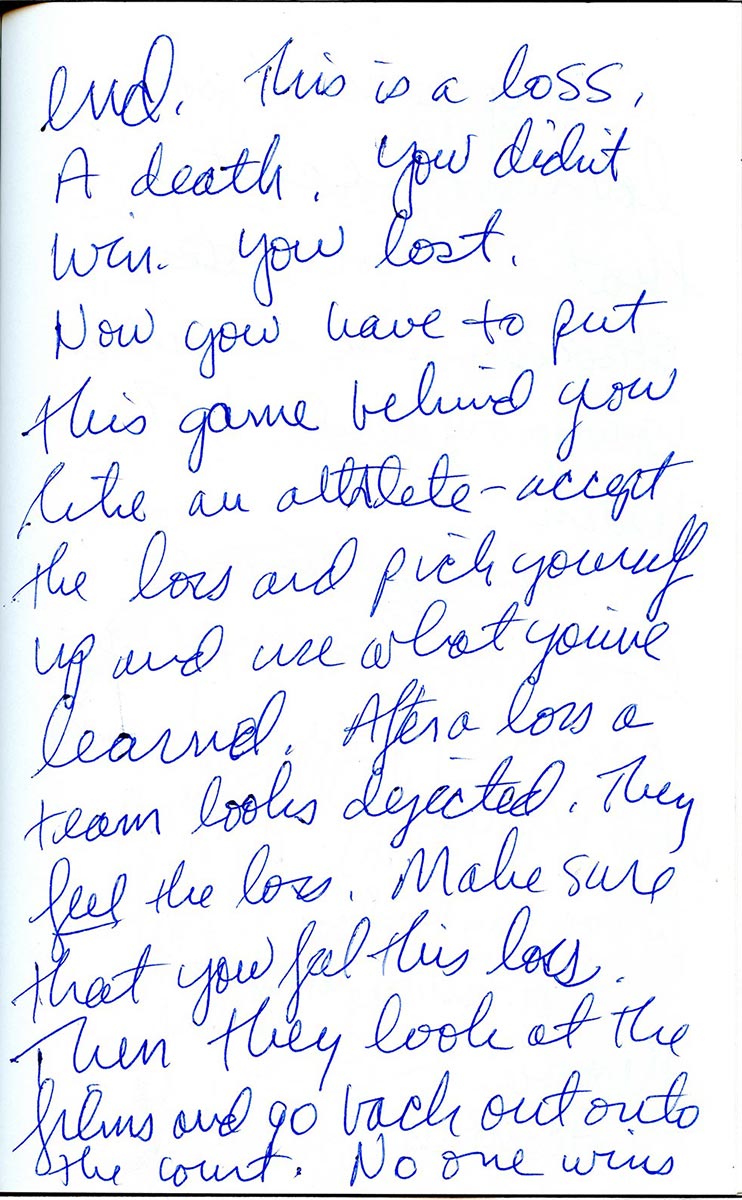 end. This is a loss.
A death. You didn't
win. You lost.
Now you have to put
this game behind you
like an athlete - accept
the loss and pick yourself
up and use what you've
learned. After a loss a
team looks dejected. They
feel the loss. Make sure
that you feel this loss.
Then they look at the
films and go back out onto
the court. No one wins